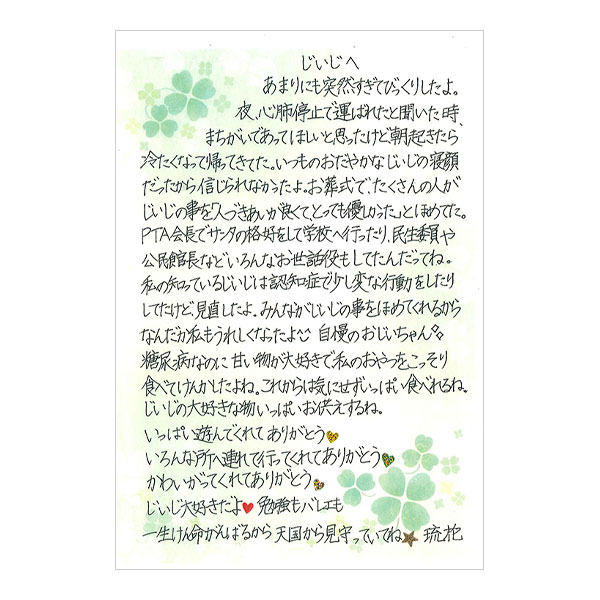 じいじへ
あまりにも突然すぎてびっくりしたよ。
夜、心肺停止で運ばれたと聞いた時、
まちがいであってほしいと思ったけど朝起きたら
冷たくなって帰ってきてた。いつものおだやかなじいじの寝顔
だったから信じられなかったよ。お葬式で、たくさんの人が
じいじの事を「人づきあいが良くてとっても優しかった」とほめてた。
PTA会長でサンタの格好をして学校へ行ったり、民生委員や
公民館長などいろんなお世話役もしてたんだってね。
私の知っているじいじは認知症で少し変な行動をしたり
してたけど見直したよ。みんながじいじの事をほめてくれるから
なんだか私もうれしくなったよ 自慢のおじいちゃん
糖尿病なのに甘い物が大好きで私のおやつをこっそり
食べてけんかしたよね。これからは気にせずいっぱい食べれるね。
じいじの大好きな物いっぱいお供えするね。
いっぱい遊んでくれてありがとう
いろんな所へ連れて行ってくれてありがとう
かわいがってくれてありがとう
じいじ大好きだよ♥勉強もバレエも
一生けん命がんばるから天国から見守っていてね★ 琉